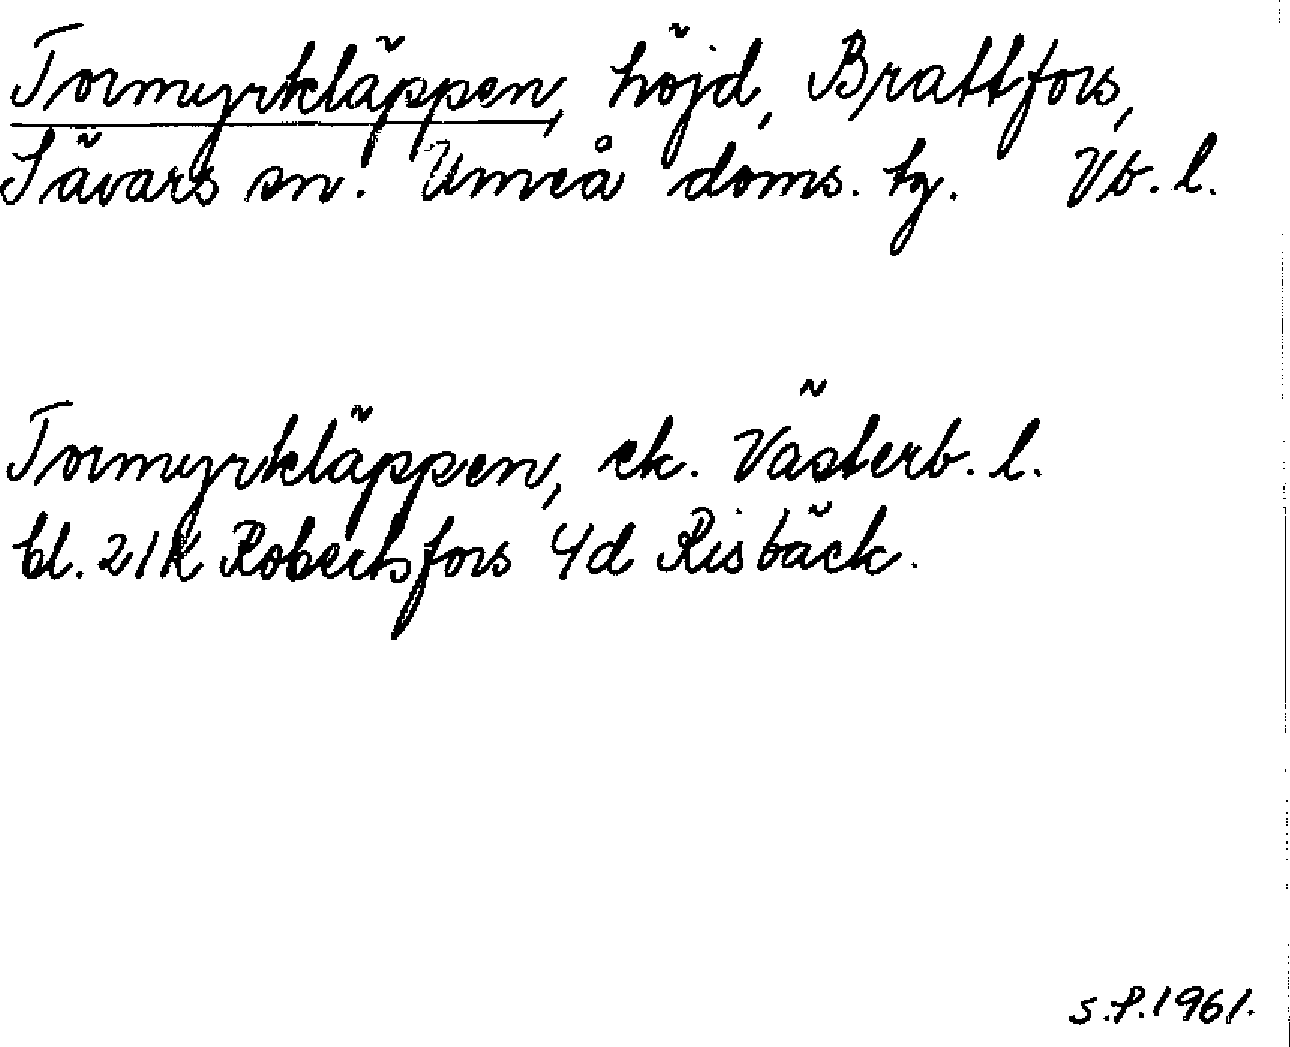 Tormyrkläppen, höjd, Brattfors,
Sävars sn. Umeå doms. tg. Vb. l.
Tormyrkläppen, ek. Västerb. l.
bl. 21K Robertsfors 4d Risbäck.
S.P.1961.